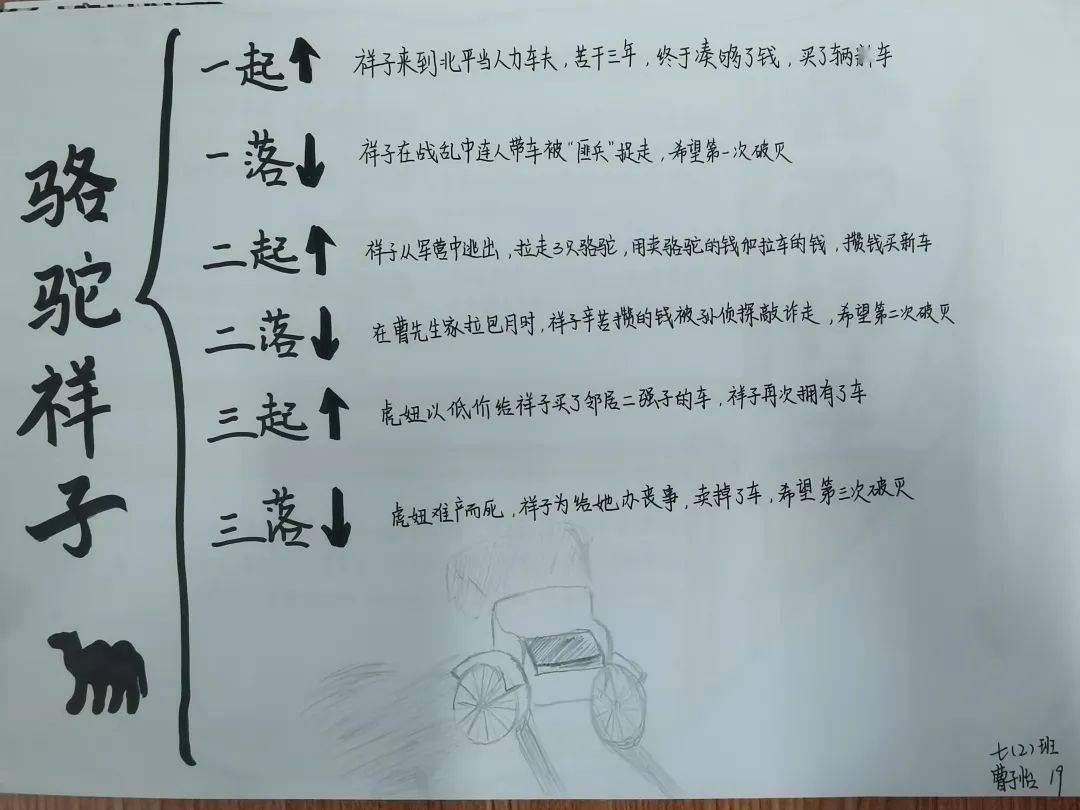 骆驼祥子
一起↑ 祥子来到北平当人力车夫，苦干三年，终于凑够了钱，买了辆新车
一落↓ 祥子在战乱中连人带车被“匪兵”捉走，希望第一次破灭
二起↑ 祥子从军营中逃出，拉走3只骆驼，用卖骆驼的钱加拉车的钱，攒钱买新车
二落↓ 在曹先生家拉包月时，祥子辛苦攒的钱被孙侦探敲诈走，希望第二次破灭
三起↑ 虎妞以低价给祥子买了邻居二强子的车，祥子再次拥有了车
三落↓ 虎妞难产而死，祥子为给她办丧事，卖掉了车，希望第三次破灭
七(2)班
曹子怡 19